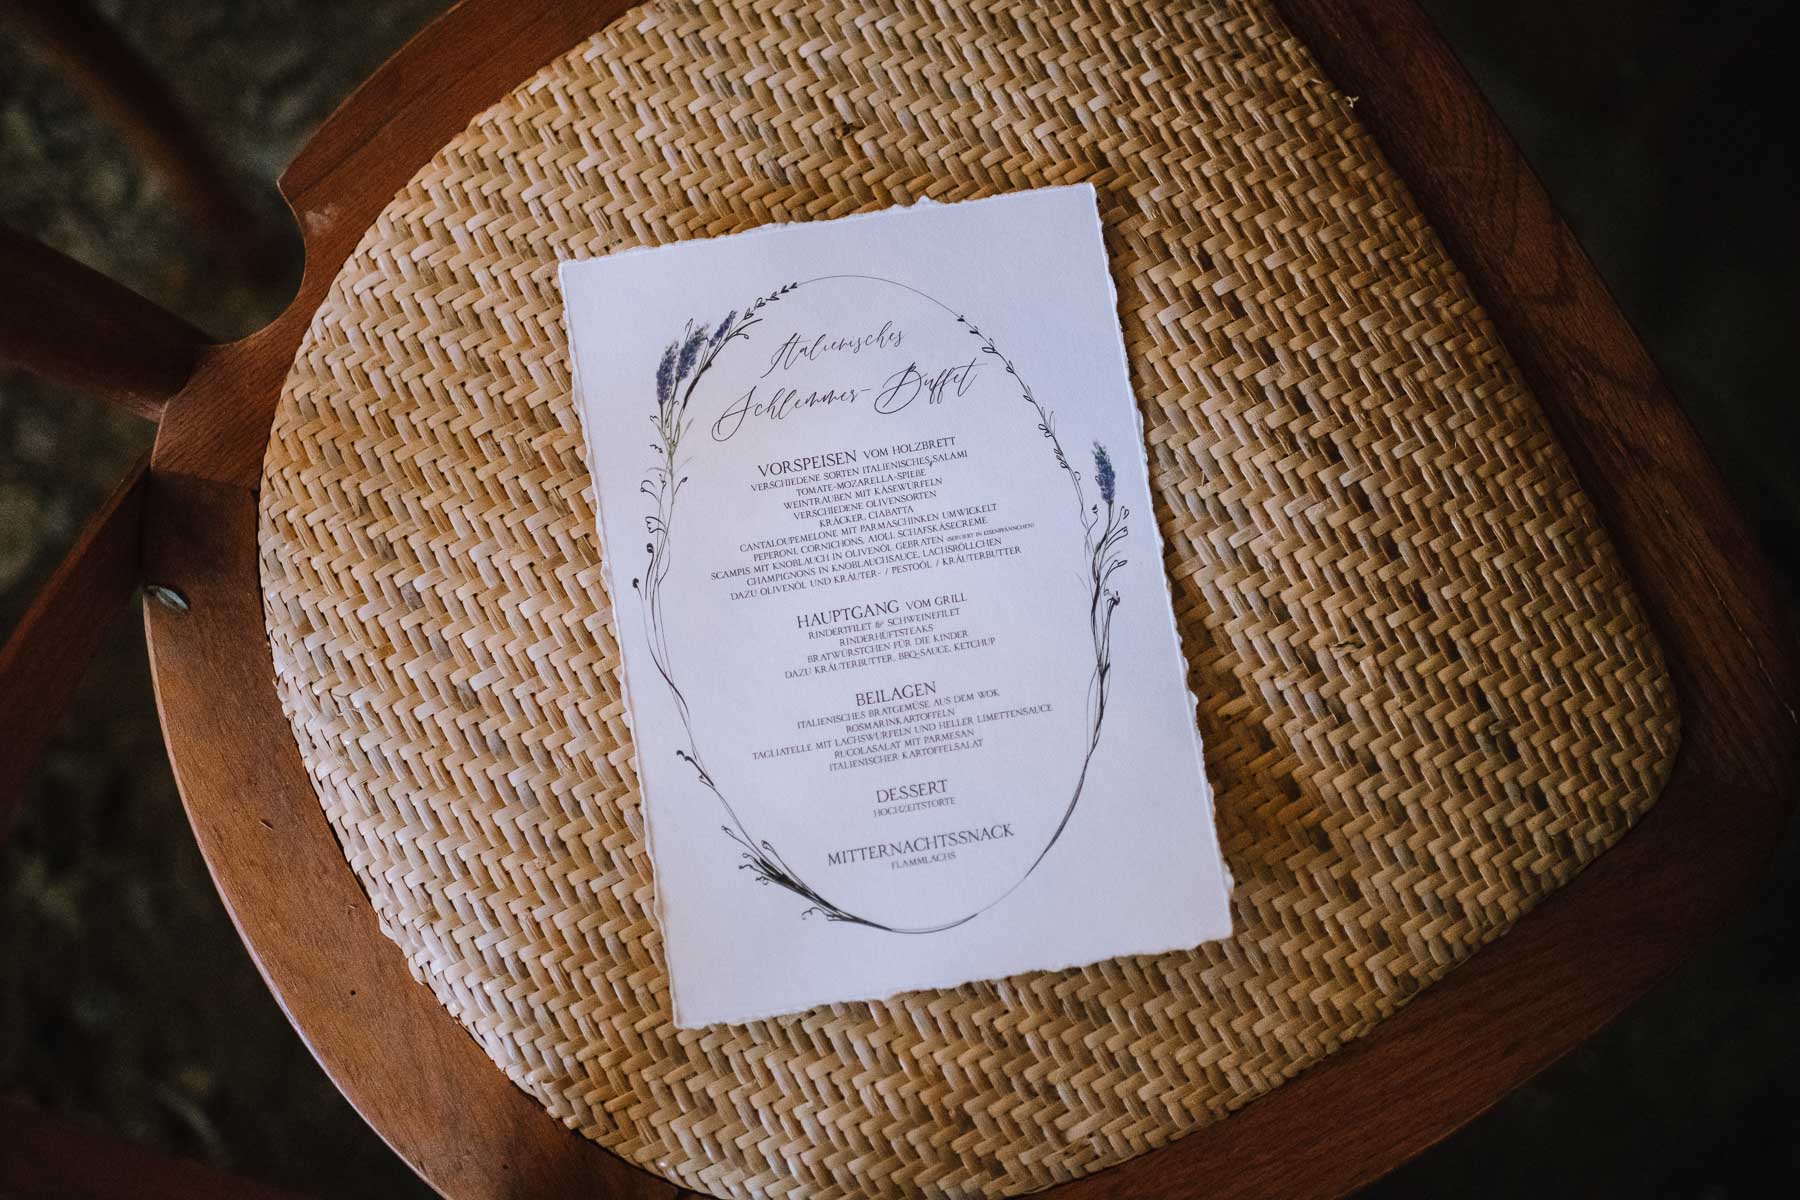 Italienisches
Schlemmer-Buffet
VORSPEISEN VOM HOLZBRETT
VERSCHIEDENE SORTEN ITALIENISCHES SALAMI
TOMATE-MOZARELLA-SPIEßE
WEINTRAUBEN MIT KÄSEWÜRFELN
VERSCHIEDENE OLIVENSORTEN
KRÄCKER, CIABATTA
CANTALOUPEMELONE MIT PARMASCHINKEN UMWICKELT
PEPERONI, CORNICHONS, AIOLI, SCHAFSKÄSECREME
SCAMPIS MIT KNOBLAUCH IN OLIVENÖL GEBRATEN (SERVIERT IN EISENPFÄNNCHEN)
CHAMPIGNONS IN KNOBLAUCHSAUCE, LACHSRÖLLCHEN
DAZU OLIVENÖL UND KRÄUTER- / PESTOÖL / KRÄUTERBUTTER
HAUPTGANG VOM GRILL
RINDERTFILET & SCHWEINEFILET
RINDERHÜFTSTEAKS
BRATWÜRSTCHEN FÜR DIE KINDER
DAZU KRÄUTERBUTTER, BBQ-SAUCE, KETCHUP
BEILAGEN
ITALIENISCHES BRATGEMÜSE AUS DEM WOK
ROSMARINKARTOFFELN
TAGLIATELLE MIT LACHSWÜRFELN UND HELLER LIMETTENSAUCE
RUCOLASALAT MIT PARMESAN
ITALIENISCHER KARTOFFELSALAT
DESSERT
HOCHZEITSTORTE
MITTERNACHTSSNACK
FLAMMLACHS